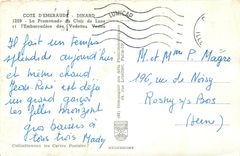 COTE D'EMERAUDE - DINARD
1239 - La Promenade du Clair de Lune
et l'Embarcadère des Vedettes Vertes
Il fait un temps
splendide aujourd'hui
et même chaud.
Jean-René est déjà
un grand garçon
les filles bronzent
gros baisers à
tous trois Mady
M. et Mme P. Magro
196, rue de Noisy
Rosny s/s Bois
(Seine)